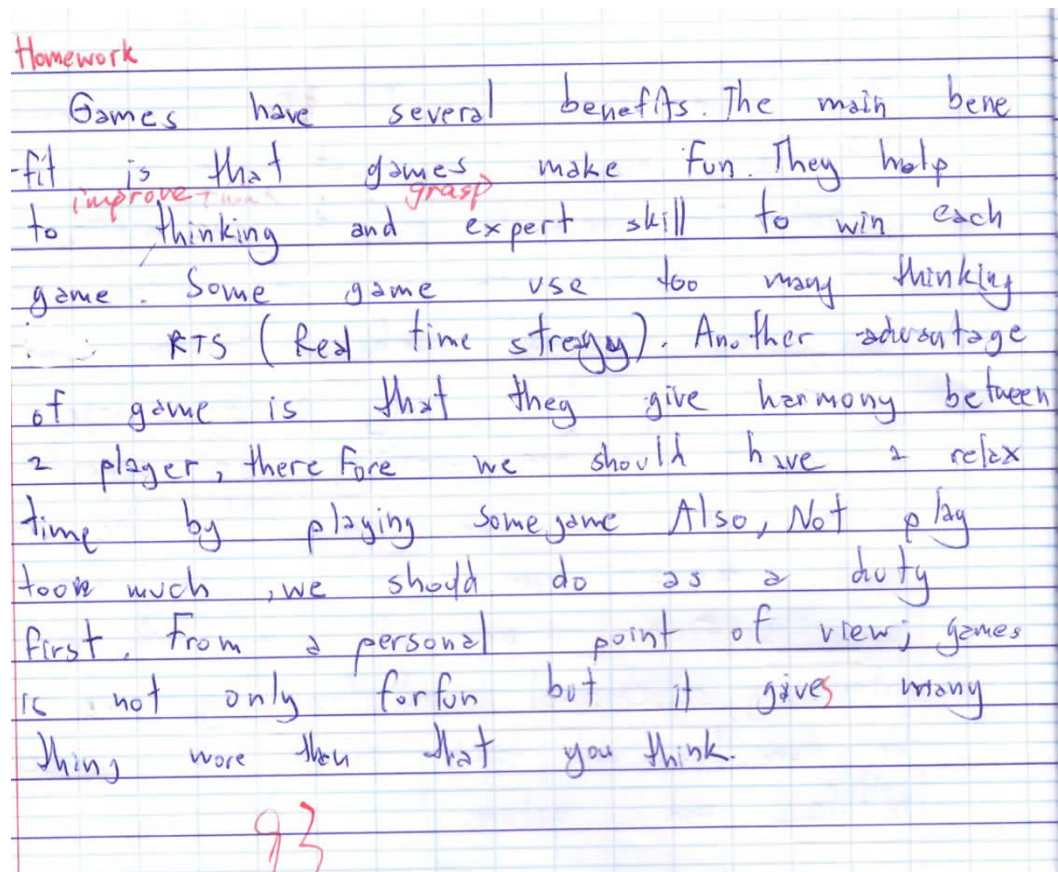 Homework
Games have several benefits. The main bene
-fit is that games make fun. They help
improve grasp
to thinking and expert skill to win each
game. Some game use too many thinking
RTS (Real time stregy). Another advantage
of game is that they give harmony between
2 player, therefore we should have a relax
time by playing some game Also, Not play
too much, we should do as a duty
first. From a personal point of view; games
is not only for fun but it gives many
thing more then that you think.
93